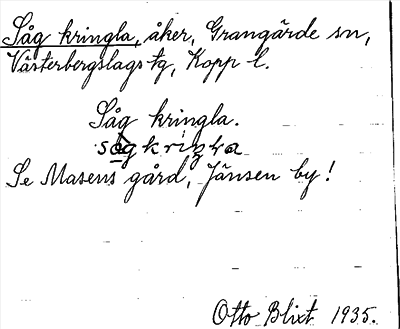 Såg kringla, åker, Grangärde sn,
Västerbergslags tg, Kopp l.
Såg kringla.
Se Masens gård, Jänsen by!
Otto Blixt 1935.